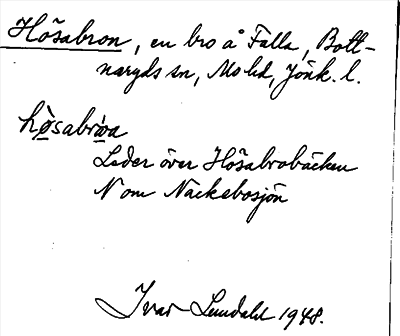 Hösabron, en bro å Falla, Bott-
naryds sn, Mo hd, Jönk. l.
hø̀sabròa
Leder över Hösabrobäcken
N om Näckebosjön
Ivar Lundahl 1948.